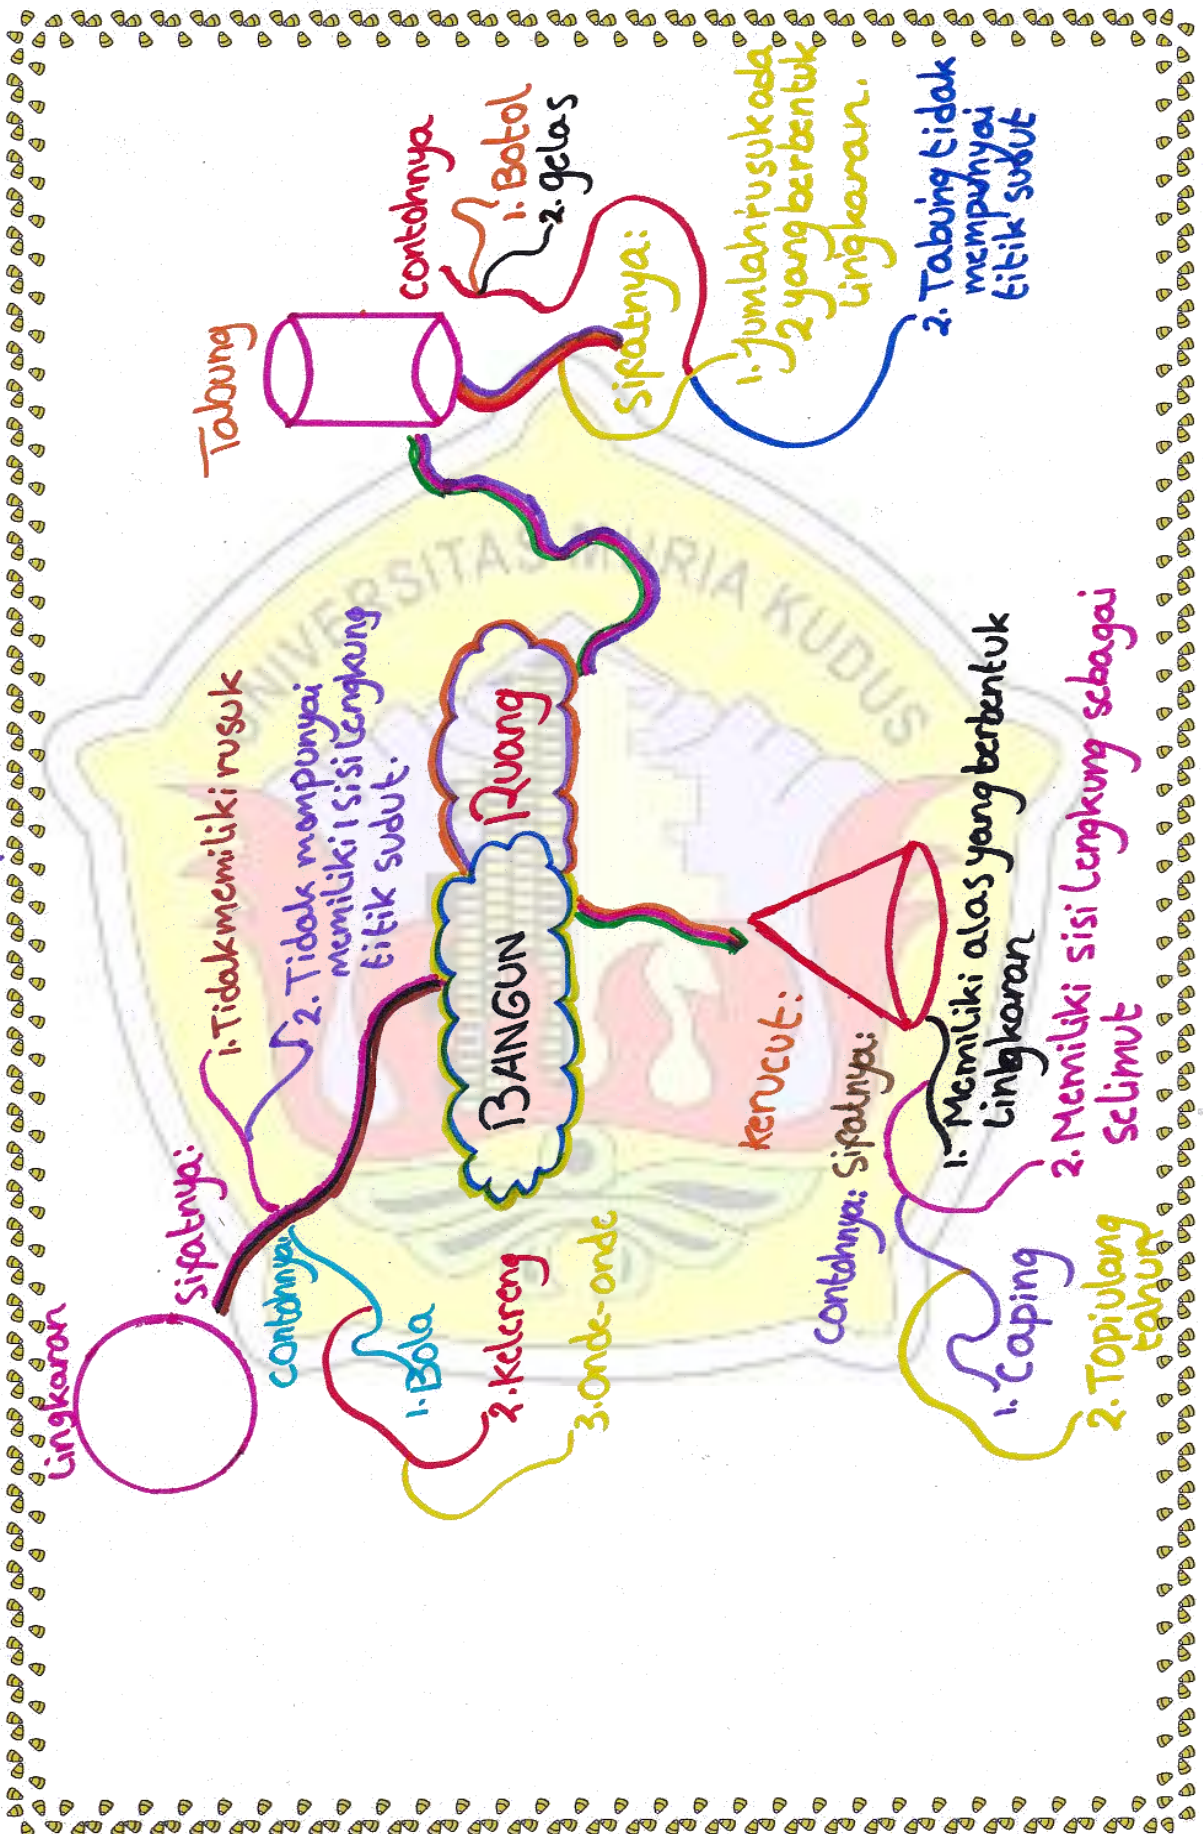 Lingkaran
Sifatnya:
1. Tidak memiliki rusuk
2. Tidak mempunyai
memiliki 1 sisi Lengkung
titik sudut.
Contohnya:
1. Bola
2. Kelereng
3. Onde-onde
BANGUN
Ruang
Tabung
Contohnya
1. Botol
2. gelas
Sifatnya:
1. Jumlah rusuk ada
2 yang berbentuk
Lingkaran.
2. Tabung tidak
mempunyai
titik sudut
kerucut:
Sifatnya:
1. Memiliki alas yang berbentuk
Lingkaran
2. Memiliki sisi Lengkung sebagai
Selimut
Contohnya:
1. Caping
2. Topi ulang
tahun
UNIVERSITAS MURIA KUDUS